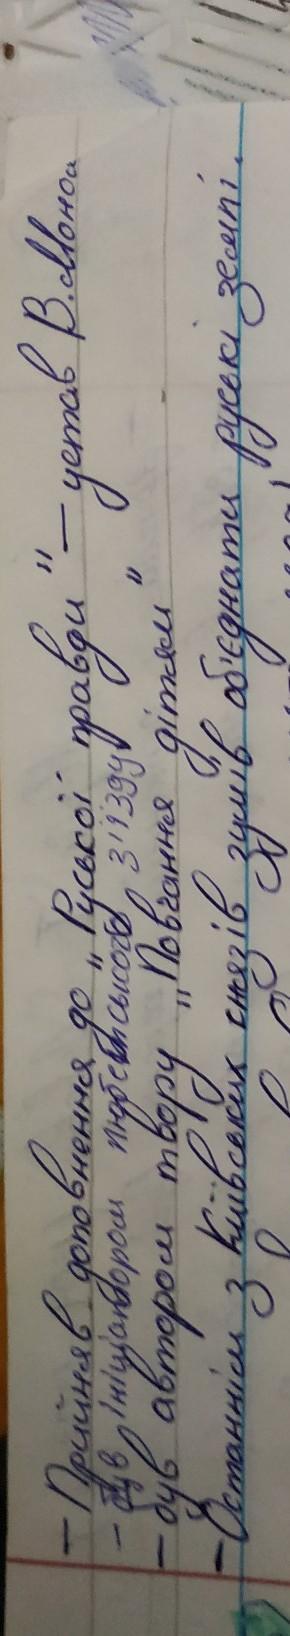 — Прийняв доповнення до „Руської правди" — устав В.Моном
— був ініціатором Любецького з'їзду
— був автором твору „Повчання дітям"
— Останнім з Київських князів зумів об'єднати руські землі.